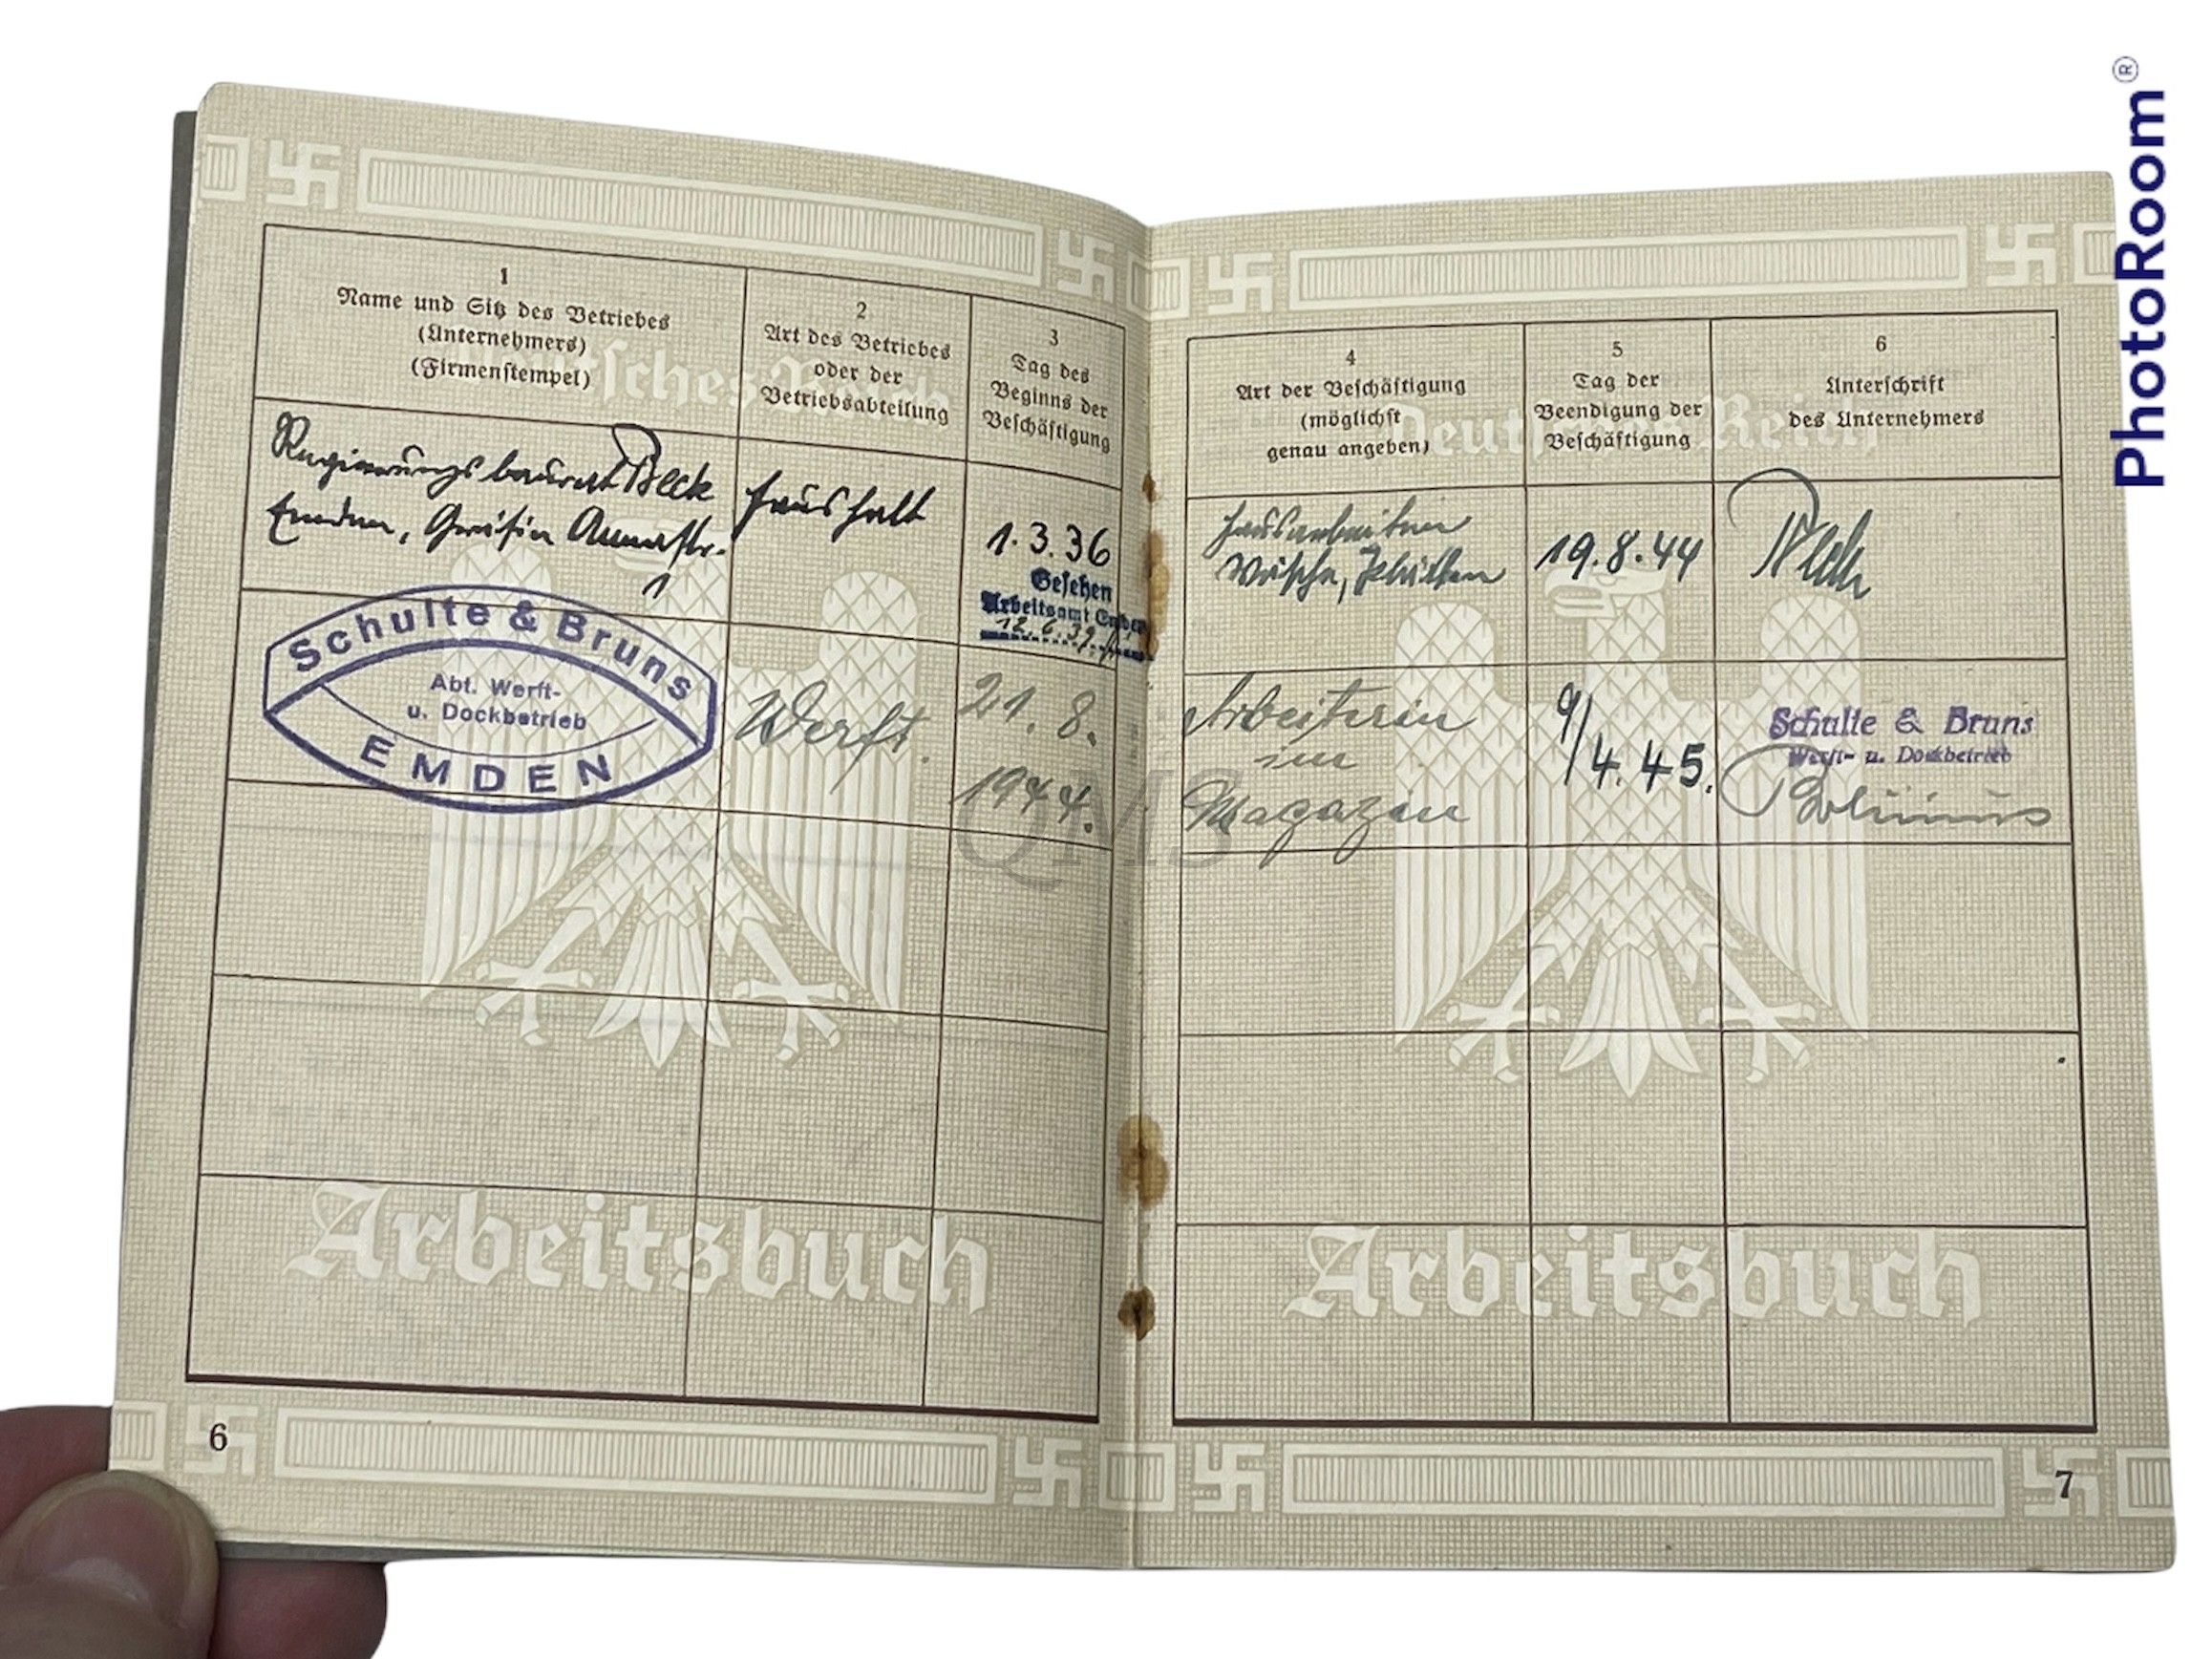 1
Name und Sitz des Betriebes
(Unternehmers)
(Firmenstempel)
2
Art des Betriebes
oder der
Betriebsabteilung
3
Tag des
Beginns der
Beschäftigung
Regierungsbaurat Beck
Emden, Gräfin Annastr.
1
Haushalt
1.3.36
Gesehen
Arbeitsamt Emden
12.6.39.
Schulte & Bruns
Abt. Werft-
u. Dockbetrieb
EMDEN
Werft.
21. 8.
1944.
6
4
Art der Beschäftigung
(möglichst
genau angeben)
5
Tag der
Beendigung der
Beschäftigung
6
Unterschrift
des Unternehmers
Hausarbeiten
Wäsche,
19.8.44
Arbeiterin
im
Magazin
9/4.45.
Schulte & Bruns
Werft- u. Dockbetrieb
7
Deutsches Reich
Deutsches Reich
Arbeitsbuch
Arbeitsbuch
QMS
PhotoRoom®